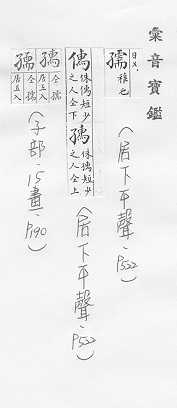 彙音寶鑑
日入.
孺 稚也
(居下平聲.P522)
儒 侏儒短少之人仝下
孺 侏獳短少之人仝上
(居下平聲.P522)
孺 仝獳
居五入
孺 仝孺
居五入
(子部.15畫.P190)